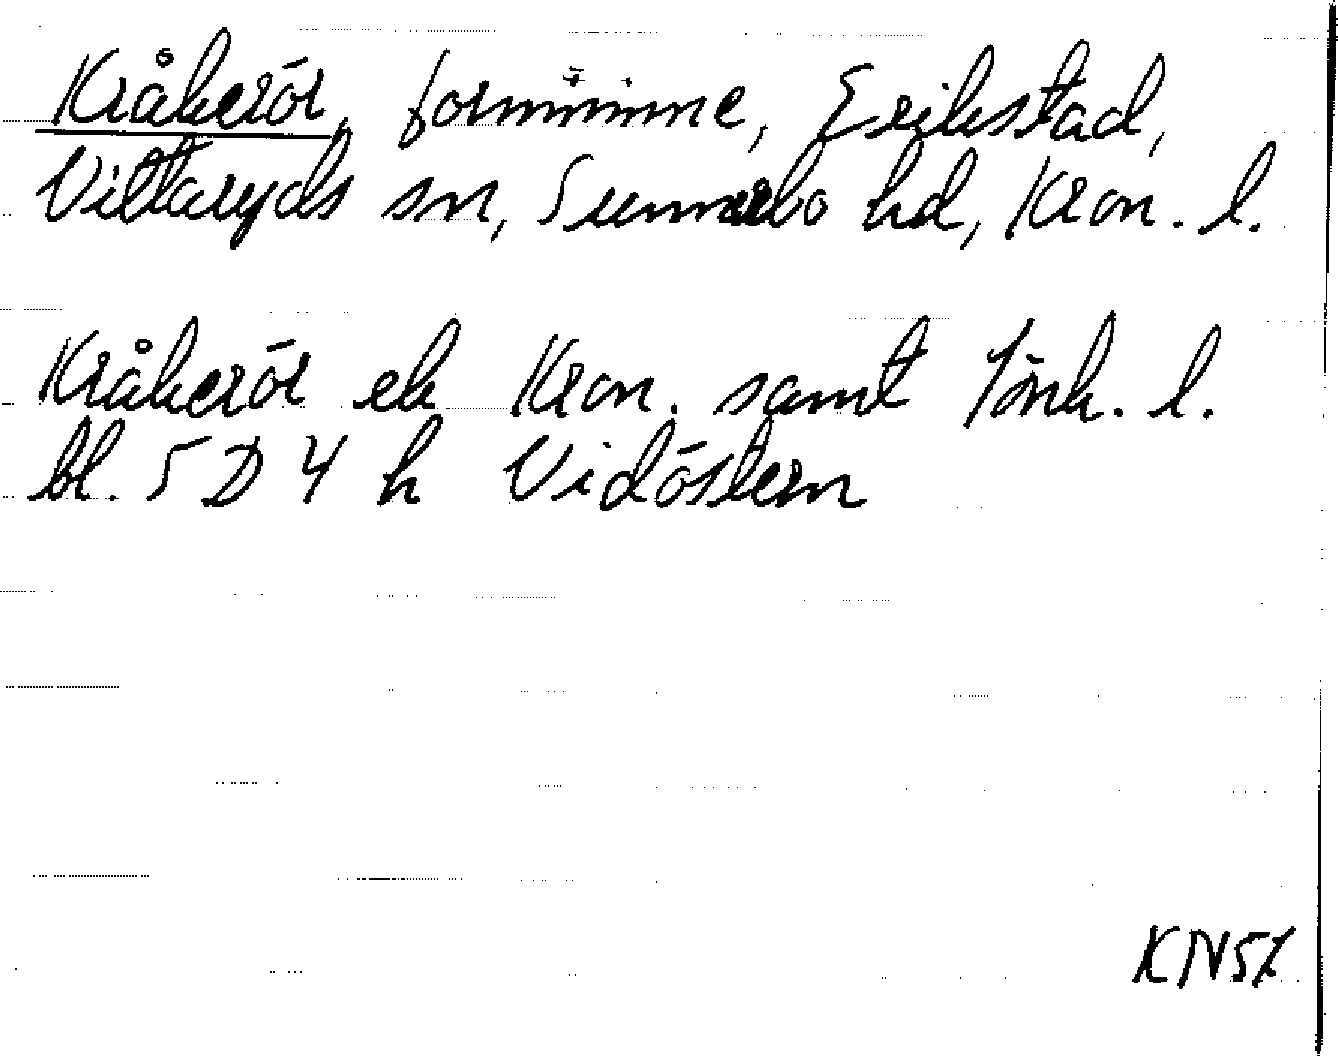 Kråkerör, fornminne, Erikstad,
Vittaryds sn, Sunnerbo hd, Kron. l.
Kråkerör ek Kron. samt Jönk. l.
bl. 5 D 4 h Vidöstern